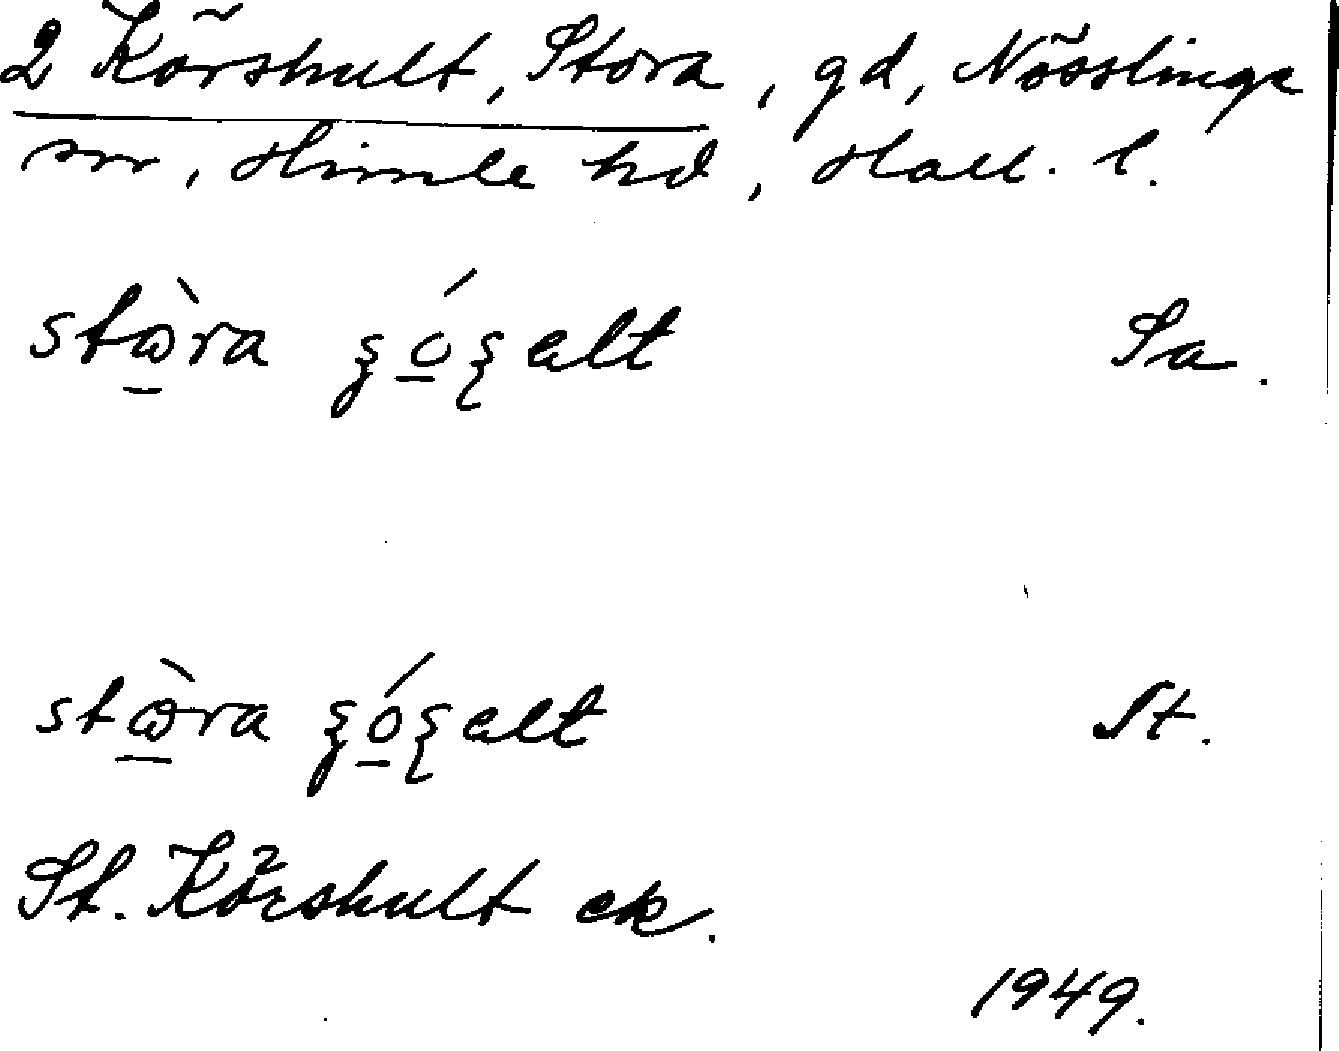 2 Körshult, Stora, gd, Nösslinge
sn, Himle hd, Hall. l.
stɷ̱̀ra ʂó̱ʂalt Sa.
stɷ̱̀ra ʂó̱ʂalt St.
St. Körshult ek.
1949.